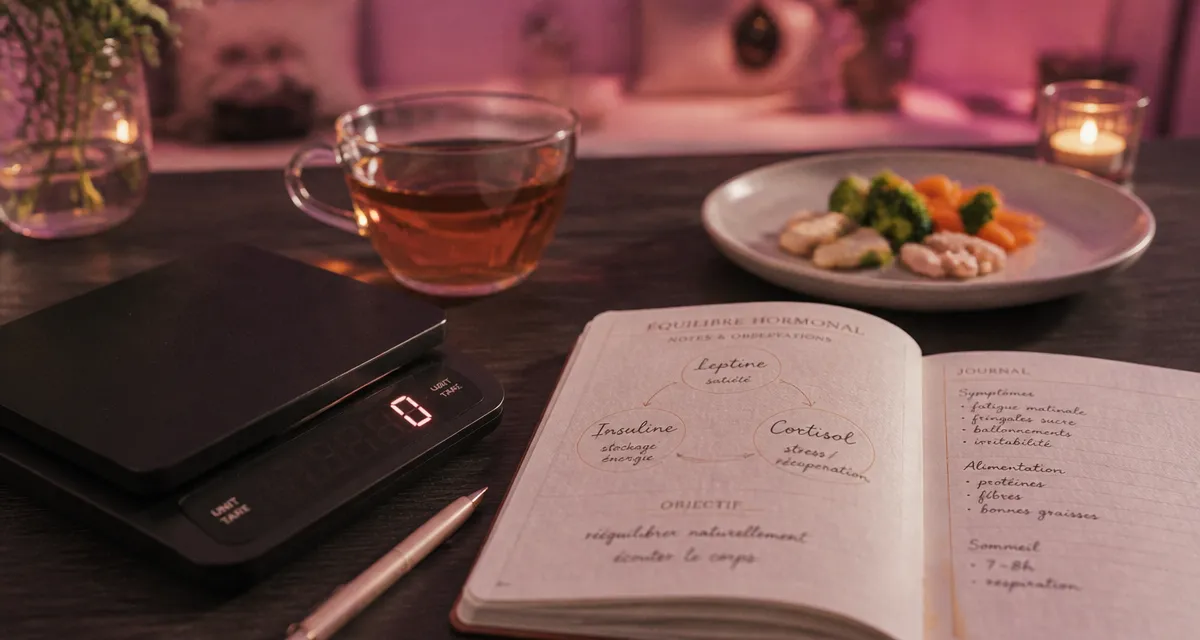 ÉQUILIBRE HORMONAL
NOTES & OBSERVATIONS
Leptine
satiété
Insuline
stockage
énergie
Cortisol
stress/
récuperation
OBJECTIF
rééquilibrer naturellement
écouter le corps
JOURNAL
Symptômes
• fatigue matinale
• fringales sucre
• ballonnements
• irritabilité
Alimentation
• protéines
• fibres
• bonnes graisses
Sommeil
• 7-8h
• respiration
0
UNIT
TARE
UNIT
TARE